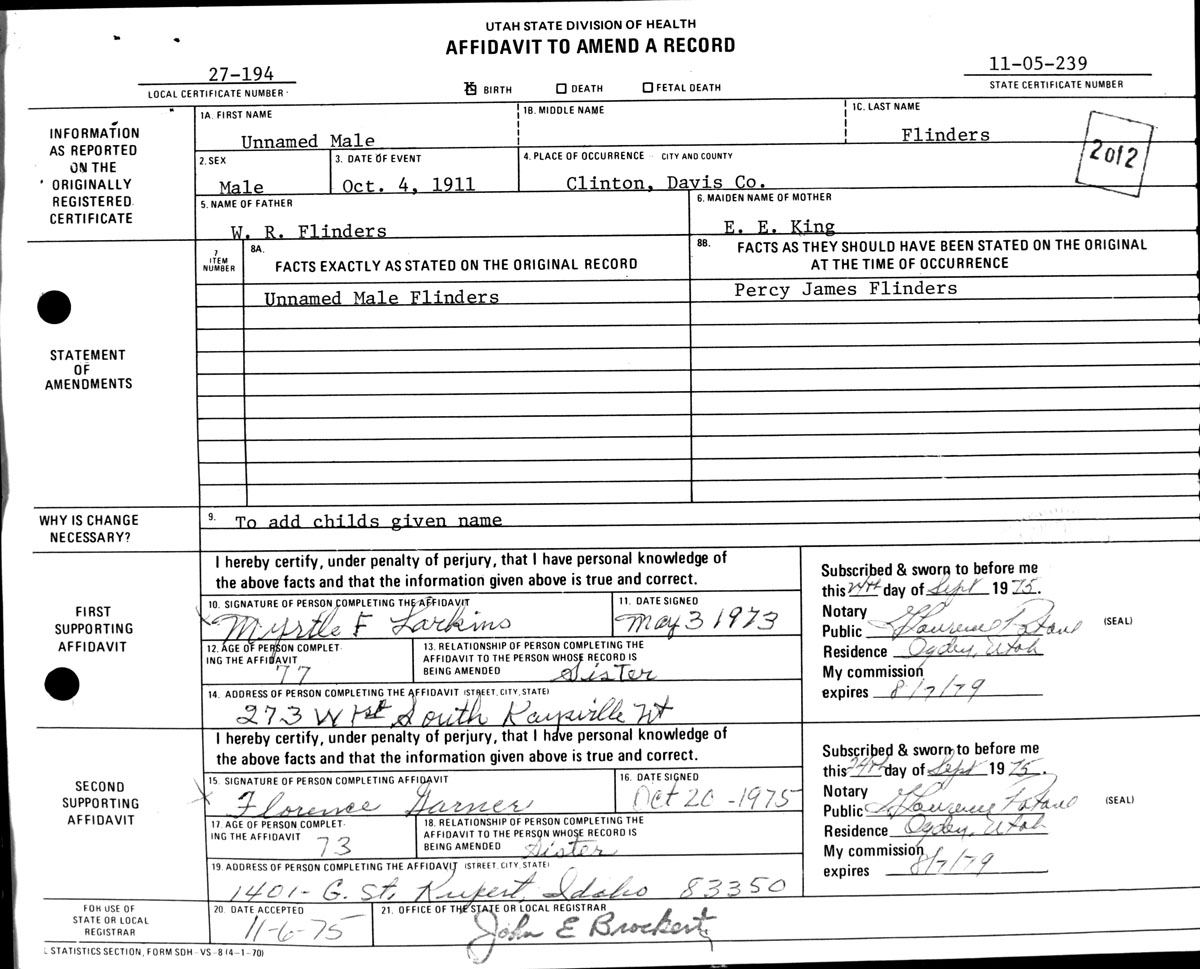 UTAH STATE DIVISION OF HEALTH
AFFIDAVIT TO AMEND A RECORD
27-194
LOCAL CERTIFICATE NUMBER
☒ BIRTH ☐ DEATH ☐ FETAL DEATH
11-05-239
STATE CERTIFICATE NUMBER
INFORMATION
AS REPORTED
ON THE
ORIGINALLY
REGISTERED
CERTIFICATE
1A. FIRST NAME 1B. MIDDLE NAME 1C. LAST NAME
Unnamed Male Flinders
2012
2. SEX 3. DATE OF EVENT 4. PLACE OF OCCURRENCE - CITY AND COUNTY
Male Oct. 4, 1911 Clinton, Davis Co.
5. NAME OF FATHER 6. MAIDEN NAME OF MOTHER
W. R. Flinders E. E. King
STATEMENT
OF
AMENDMENTS
7
ITEM
NUMBER
8A.
FACTS EXACTLY AS STATED ON THE ORIGINAL RECORD
8B. FACTS AS THEY SHOULD HAVE BEEN STATED ON THE ORIGINAL
AT THE TIME OF OCCURRENCE
Unnamed Male Flinders Percy James Flinders
WHY IS CHANGE
NECESSARY?
9. To add childs given name
FIRST
SUPPORTING
AFFIDAVIT
I hereby certify, under penalty of perjury, that I have personal knowledge of
the above facts and that the information given above is true and correct.
10. SIGNATURE OF PERSON COMPLETING THE AFFIDAVIT
Myrtle F Larkins
11. DATE SIGNED
May 3 1973
12. AGE OF PERSON COMPLET-
ING THE AFFIDAVIT
77
13. RELATIONSHIP OF PERSON COMPLETING THE
AFFIDAVIT TO THE PERSON WHOSE RECORD IS
BEING AMENDED Sister
14. ADDRESS OF PERSON COMPLETING THE AFFIDAVIT (STREET, CITY, STATE)
273 W 1st South Kaysville Ut
Subscribed & sworn to before me
this day of Sept 1975.
Notary
Public (SEAL)
Residence Ogden, Utah
My commission
expires 8/7/79
SECOND
SUPPORTING
AFFIDAVIT
I hereby certify, under penalty of perjury, that I have personal knowledge of
the above facts and that the information given above is true and correct.
15. SIGNATURE OF PERSON COMPLETING AFFIDAVIT
Florence Garner
16. DATE SIGNED
Oct 20 - 1975
17. AGE OF PERSON COMPLET-
ING THE AFFIDAVIT
73
18. RELATIONSHIP OF PERSON COMPLETING THE
AFFIDAVIT TO THE PERSON WHOSE RECORD IS
BEING AMENDED Sister
19. ADDRESS OF PERSON COMPLETING THE AFFIDAVIT (STREET, CITY, STATE)
1401- G. St, Rupert, Idaho 83350
Subscribed & sworn to before me
this 24th day of Sept 1975.
Notary
Public (SEAL)
Residence Ogden, Utah
My commission
expires 8/7/79
FOR USE OF
STATE OR LOCAL
REGISTRAR
20. DATE ACCEPTED
11-6-75
21. OFFICE OF THE STATE OR LOCAL REGISTRAR
John E Brockert
STATISTICS SECTION, FORM SDH - VS - 8 (4-1-70)